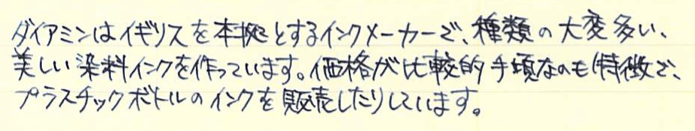 ダイアミンはイギリスを本拠とするインクメーカーで、種類の大変多い、
美しい染料インクを作っています。価格が比較的手頃なのも特徴で、
プラスチックボトルのインクを販売したりしています。